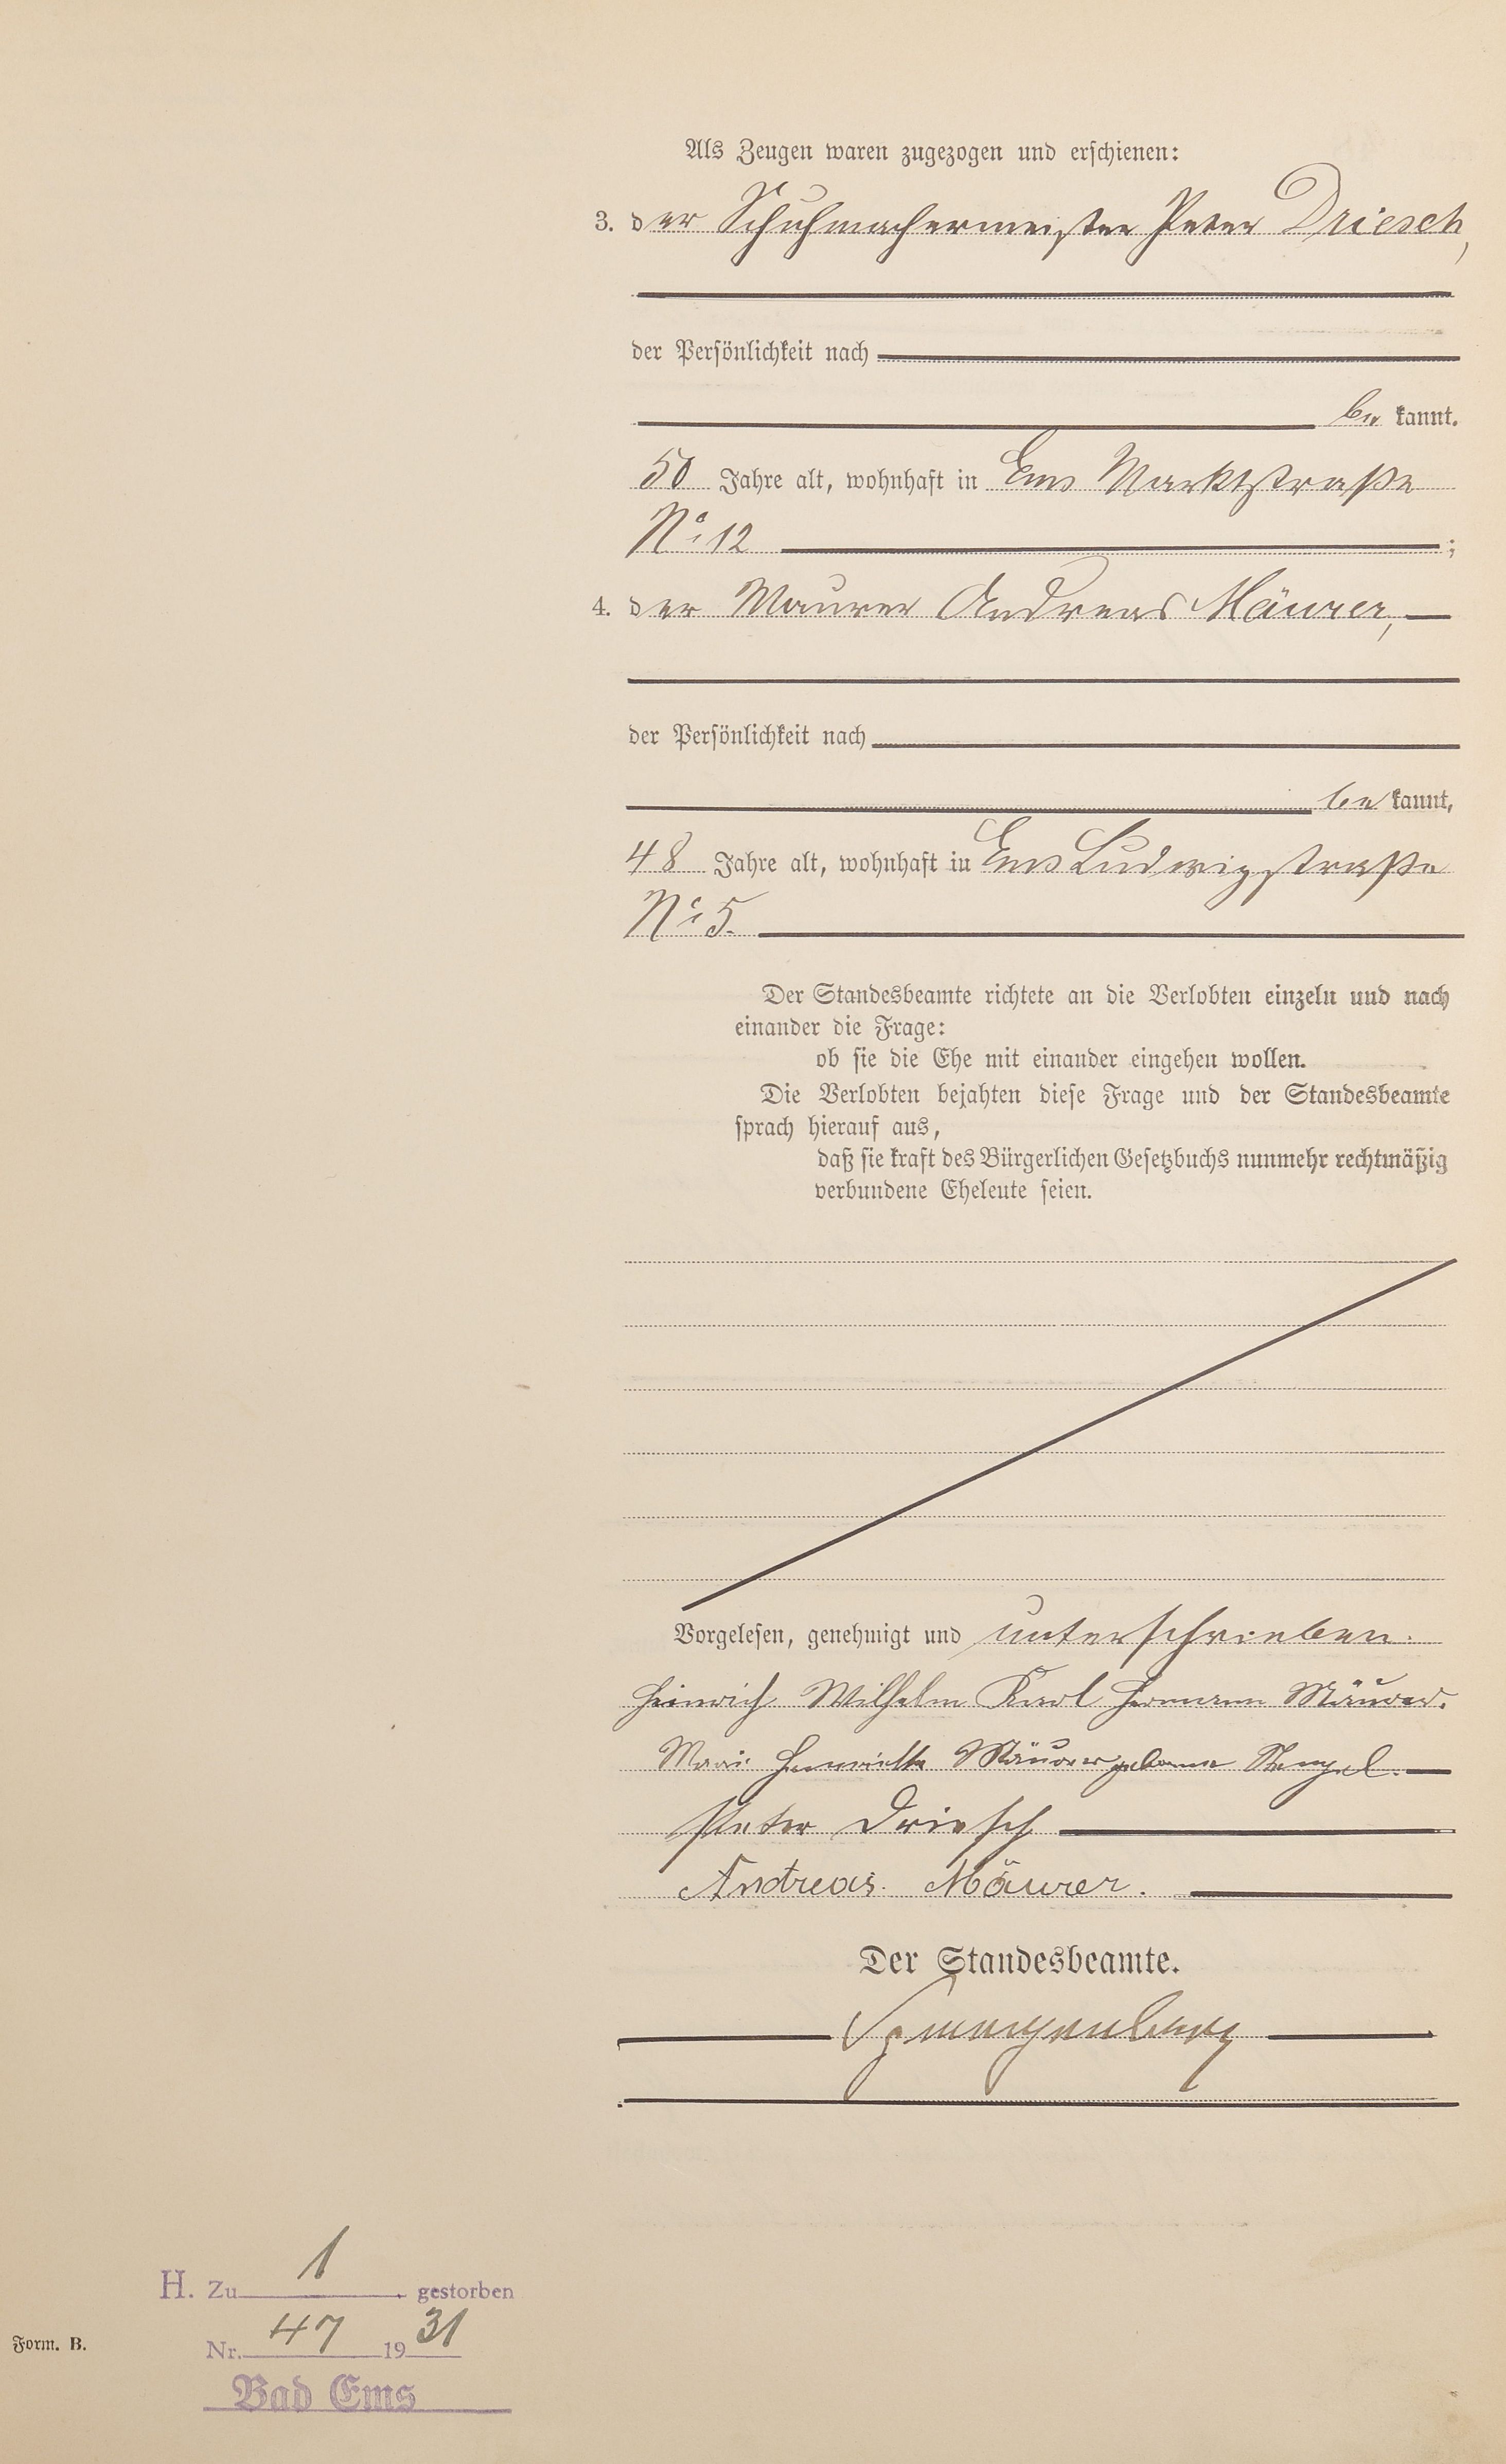 Als Zeugen waren zugezogen und erschienen:
3. der Schuhmachermeister Peter Driesch,
der Persönlichkeit nach
be kannt.
50 Jahre alt, wohnhaft in Ems Marktstraße
No. 12 ;
4. der Maurer Andreas Mäurer,
der Persönlichkeit nach
be kannt,
48 Jahre alt, wohnhaft in Ems Ludwigstraße
No. 5.
Der Standesbeamte richtete an die Verlobten einzeln und nach
einander die Frage:
ob sie die Ehe mit einander eingehen wollen.
Die Verlobten bejahten diese Frage und der Standesbeamte
sprach hierauf aus,
daß sie kraft des Bürgerlichen Gesetzbuchs nunmehr rechtmäßig
verbundene Eheleute seien.
Vorgelesen, genehmigt und unterschrieben.
Heinrich Wilhelm Karl Hermann Mäurer.
Henriette Mäurer geborene Stengel.
Peter Driesch
Andreas Mäurer.
Der Standesbeamte.
H. Zu 1 gestorben
Nr. 47 1931
Form. B.
Bad Ems